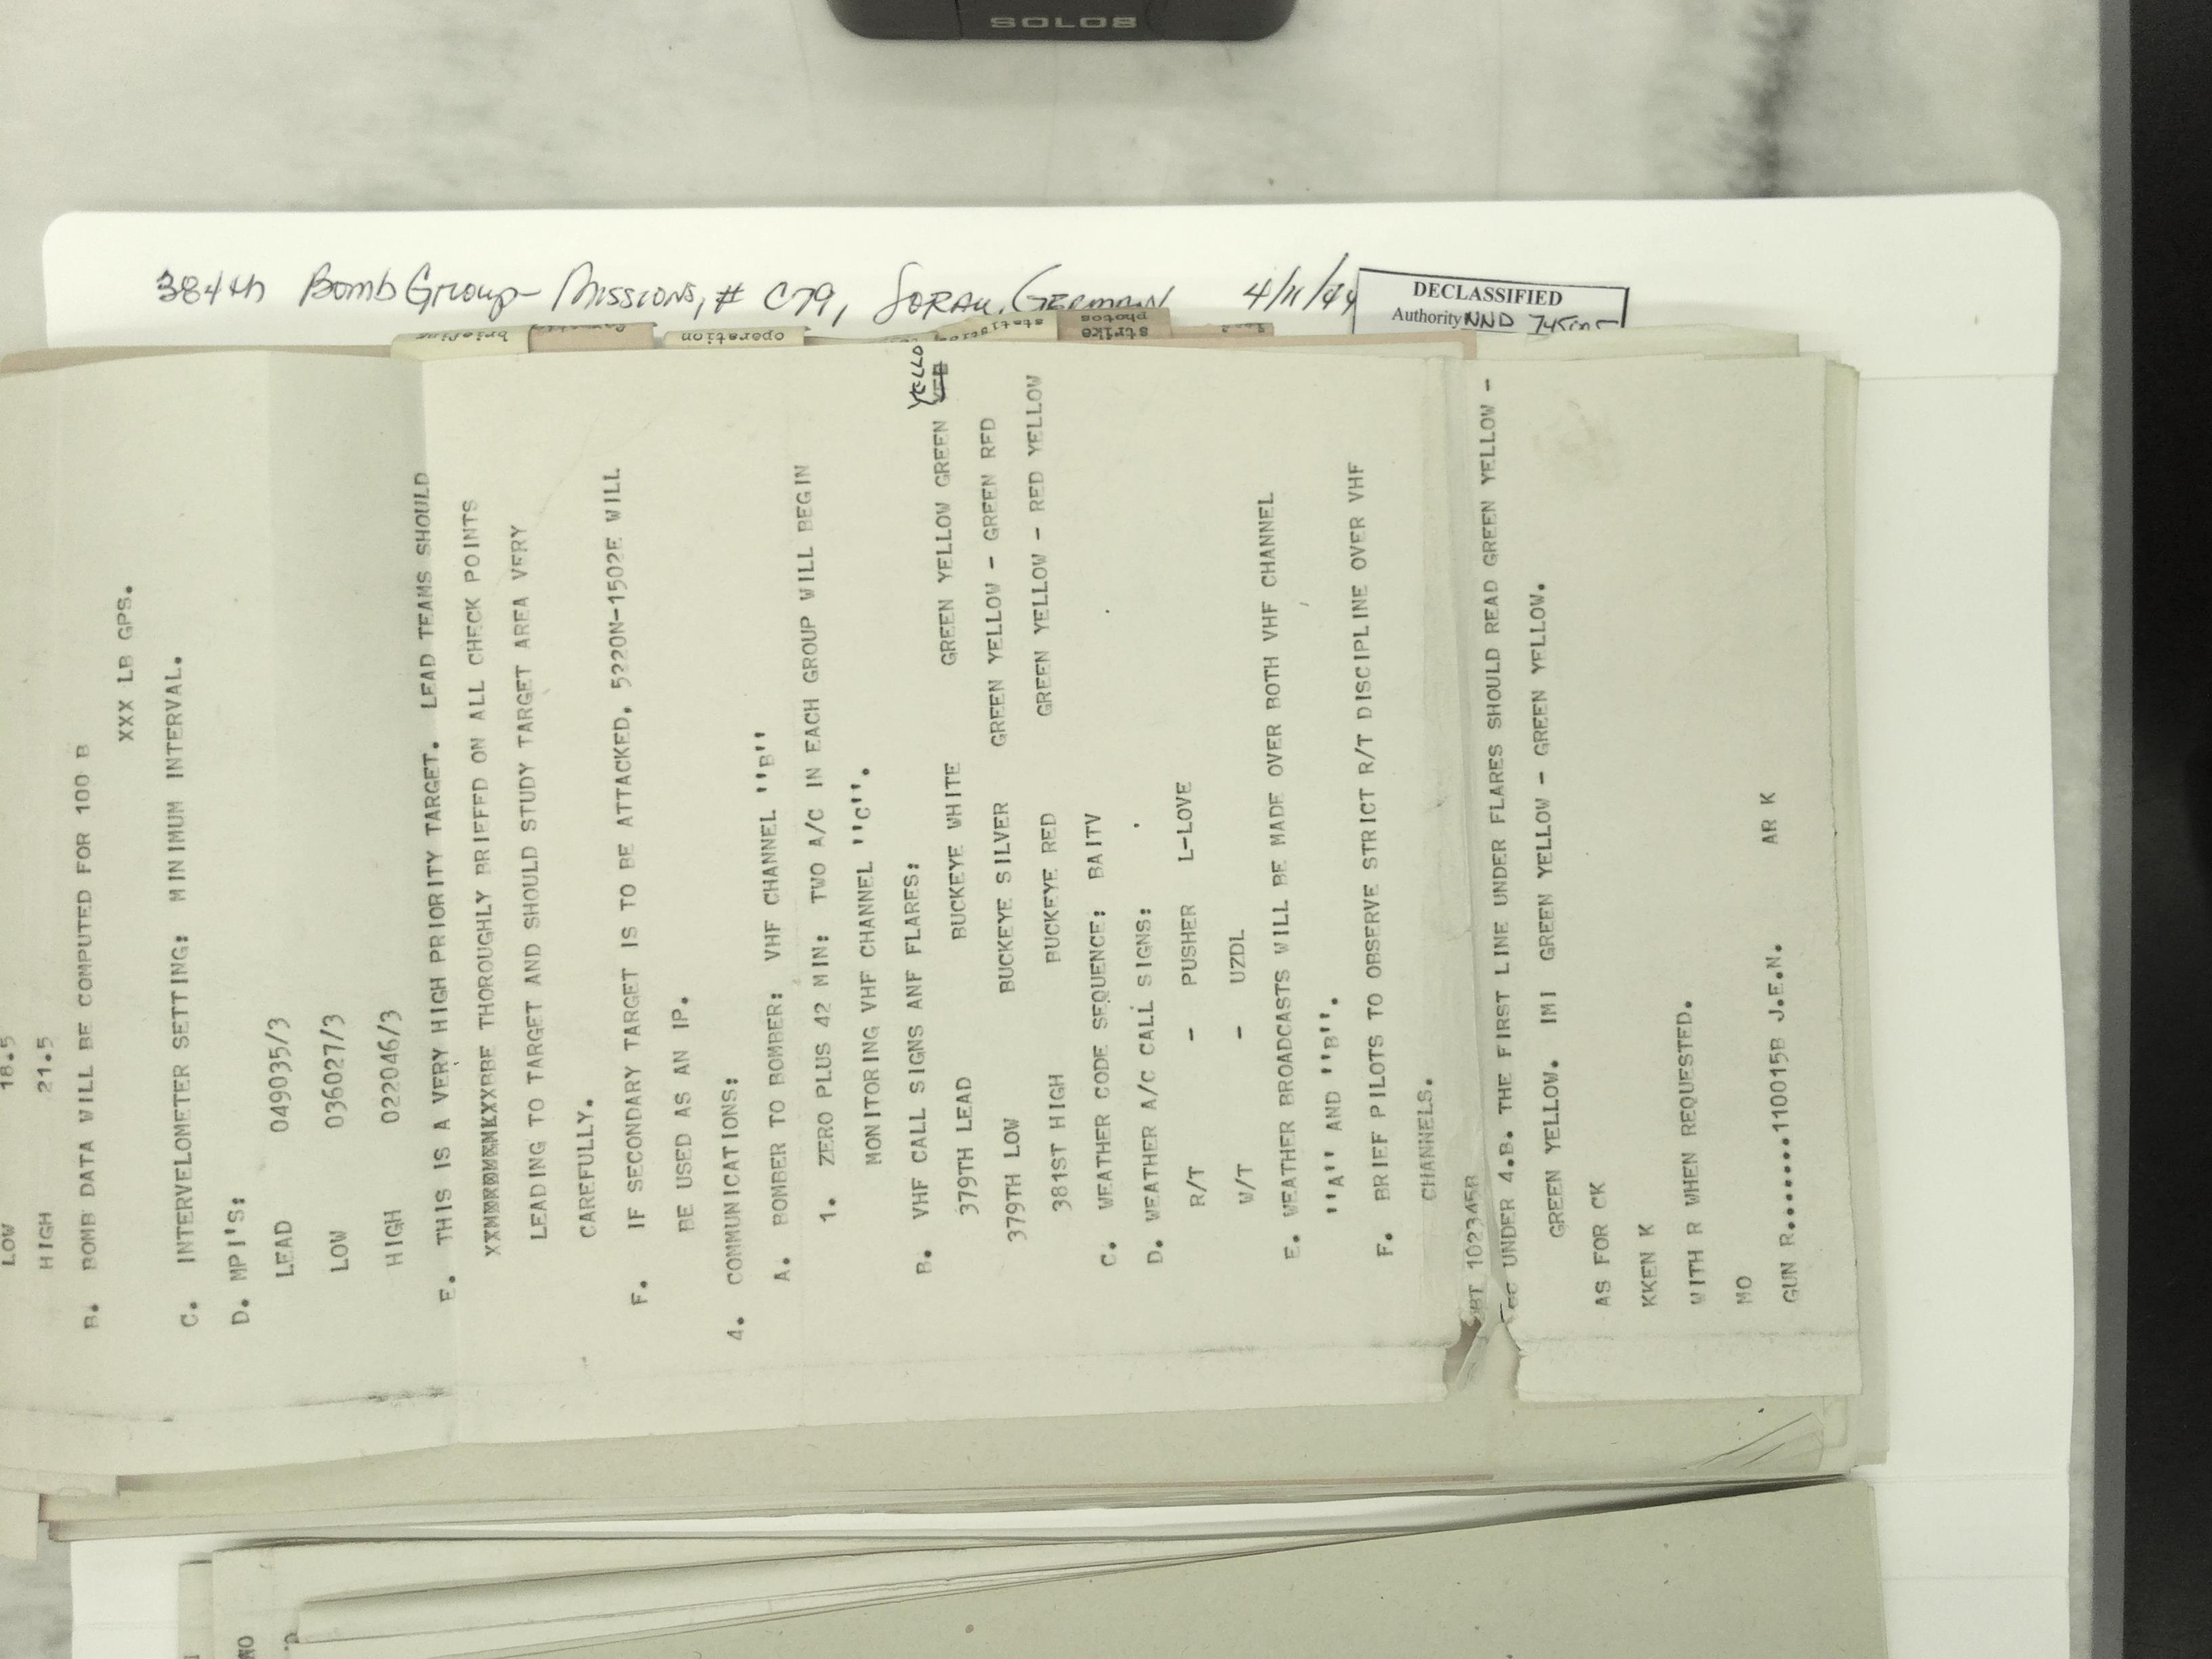 SOLOS
384th Bomb Group- Missions, # C79, Sorau, Germany 4/11/44
DECLASSIFIED
Authority NND 745005
briefing
operation
strike
photos
LOW 18.5
HIGH 21.5
B. BOMB DATA WILL BE COMPUTED FOR 100 B
XXX LB GPS.
C. INTERVELOMETER SETTING: MINIMUM INTERVAL.
D. MPI'S:
LEAD 049035/3
LOW 036027/3
HIGH 022046/3
E. THIS IS A VERY HIGH PRIORITY TARGET. LEAD TEAMS SHOULD
BE THOROUGHLY BRIEFFD ON ALL CHECK POINTS
LEADING TO TARGET AND SHOULD STUDY TARGET AREA VERY
CAREFULLY.
F. IF SECONDARY TARGET IS TO BE ATTACKED, 5220N-1502E WILL
BE USED AS AN IP.
4. COMMUNICATIONS:
A. BOMBER TO BOMBER: VHF CHANNEL ''B''
1. ZERO PLUS 42 MIN: TWO A/C IN EACH GROUP WILL BEGIN
MONITORING VHF CHANNEL ''C''.
B. VHF CALL SIGNS ANF FLARES:
379TH LEAD BUCKEYE WHITE GREEN YELLOW GREEN YELLO
379TH LOW BUCKEYE SILVER GREEN YELLOW - GREEN RED
381ST HIGH BUCKEYE RED GREEN YELLOW - RED YELLOW
C. WEATHER CODE SEQUENCE: BAITV
D. WEATHER A/C CALL SIGNS:
R/T - PUSHER L-LOVE
W/T - UZDL
E. WEATHER BROADCASTS WILL BE MADE OVER BOTH VHF CHANNEL
''A'' AND ''B''.
F. BRIEF PILOTS TO OBSERVE STRICT R/T DISCIPLINE OVER VHF
CHANNELS.
BT 102345B
UNDER 4.B. THE FIRST LINE UNDER FLARES SHOULD READ GREEN YELLOW -
GREEN YELLOW. IMI GREEN YELLOW - GREEN YELLOW.
AS FOR CK
KKEN K
WITH R WHEN REQUESTED.
MO
GUN R.......110015B J.E.N. AR K